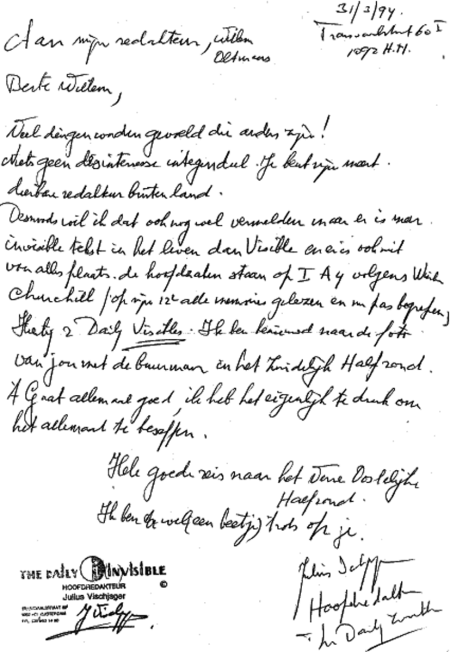 31/3/94.
Transvaalstraat 60 I
1092 H.M.
Aan mijn redakteur, Willem
Oltmans
Beste Willem,
Veel dingen worden gevoeld die anders zijn!
Niets geen desinteresse integendeel. Je bent mijn meest
dierbare redakteur buitenland.
Desnoods wil ik dat ook nog wel vermelden maar er is meer
invisible tekst in het leven dan Visible en er is ook niet
voor alles plaats. de hoofdzaken staan op I A4 volgens
Churchill / op mijn 12e alle memoires gelezen en nu pas begrepen,
Hierbij 2 Daily Visibles. Ik ben benieuwd naar de foto
van jou met de buurman in het Zuidelijk Halfrond.
Gaat allemaal goed, ik heb het eigenlijk te druk om
het allemaal te beseffen.
Hele goede reis naar het Verre Oostelijke
Halfrond.
Ik ben wel (een beetje) trots op je.
Hoofdredakteur
The Daily
THE DAILY INVISIBLE
HOOFDREDAKTEUR ©
Julius Vischjager